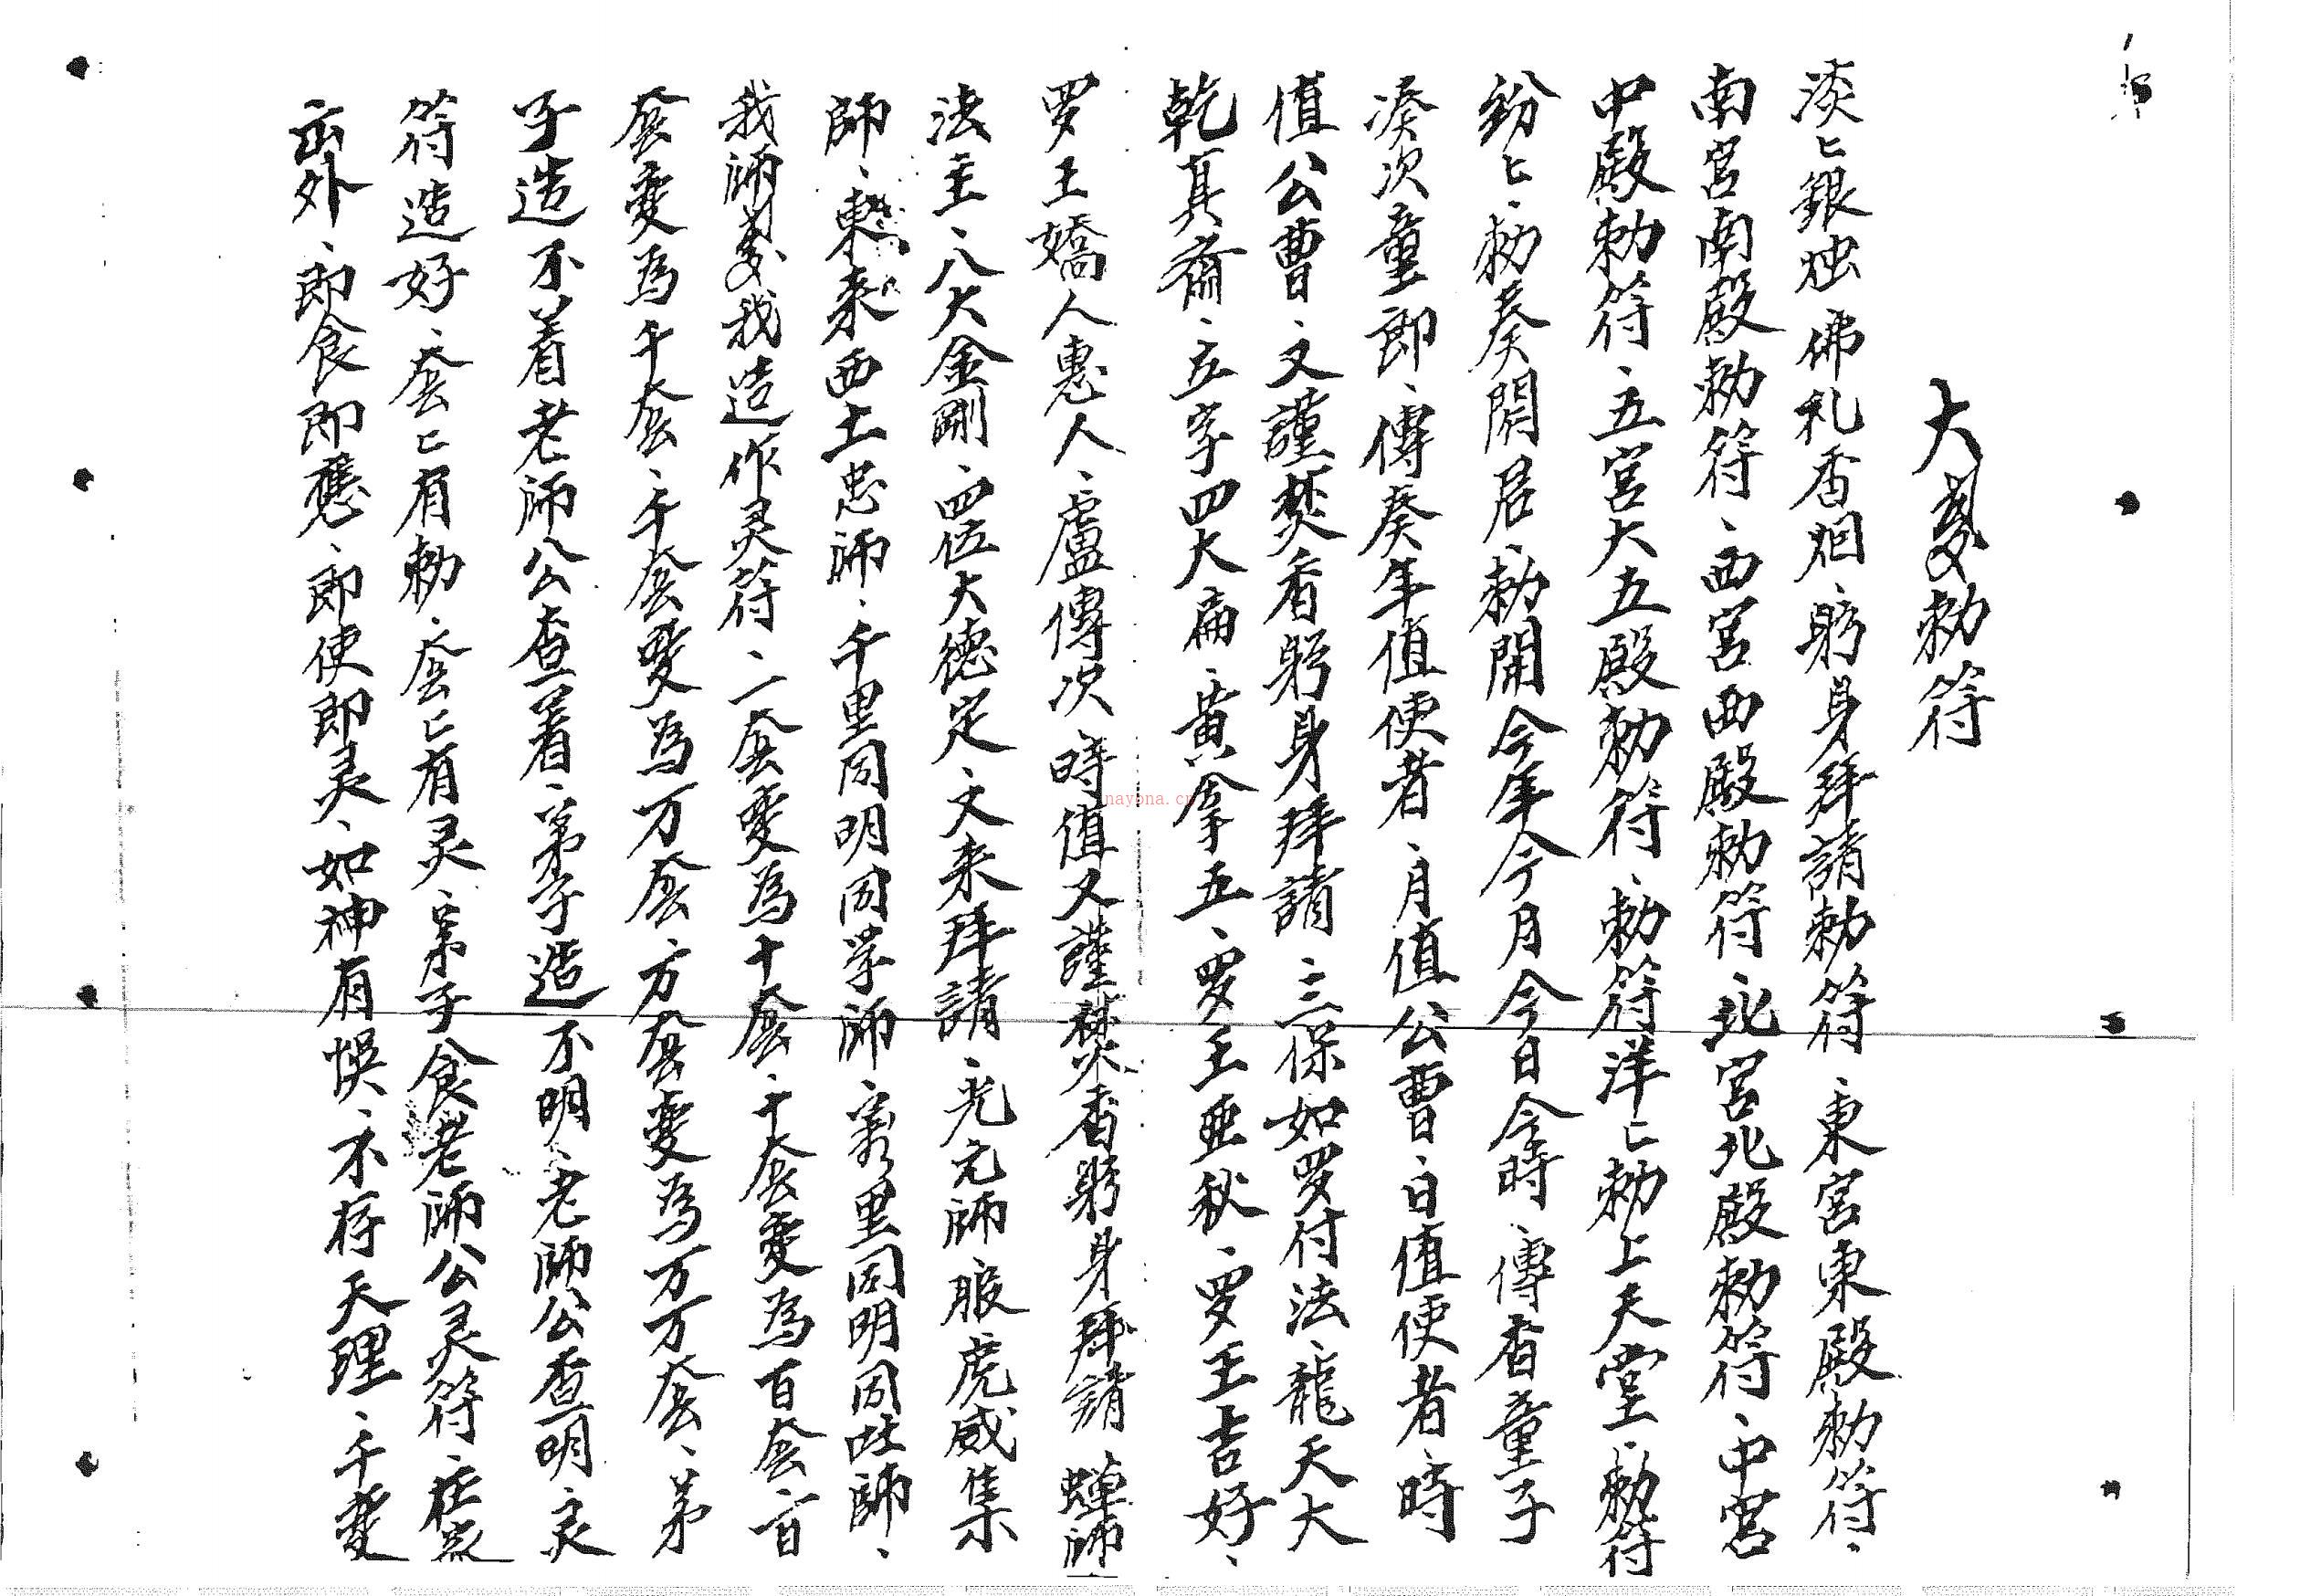 大變勅符
淡〻銀烛、佛礼香烟、躬身拜請勅符、東宮東殿勅符、
南宮南殿勅符、西宮西殿勅符、北宮北殿勅符、中宮
中殿勅符、五宮大五殿勅符、勅符洋〻勅上天堂、勅符
紛〻、勅奏開居、勅開今年今月今日今時、傳香童子
凑次童郎、傳奏年值使者、月值公曹、日值使者、時
值公曹、又謹焚香躬身拜請、三保如罗付法、龍天大
乾其齋、立字四大扁、黄拿五、罗王亜秋、罗王吉好、
罗王嬌人惠人、盧傳次、時值又謹焚香躬身拜請 蟬師
法主、八大金剛、四位大德定、文来拜請、光元師服虎威集
師、東来西土忠師、千里同明同学師、里同明同吽師、
我師變我造作灵符、一套變為十套、十套變為百套、百
套變為千套、千套變為万套、万套變為万万套、弟
子造不着老師公查着、弟子造不明、老師公查明、灵
符造好、套〻有勅、套〻有灵、弟子食老師公灵符、在
出外、即食即應、即使即灵、如神有悞、不存天理、千變
nayona.cn